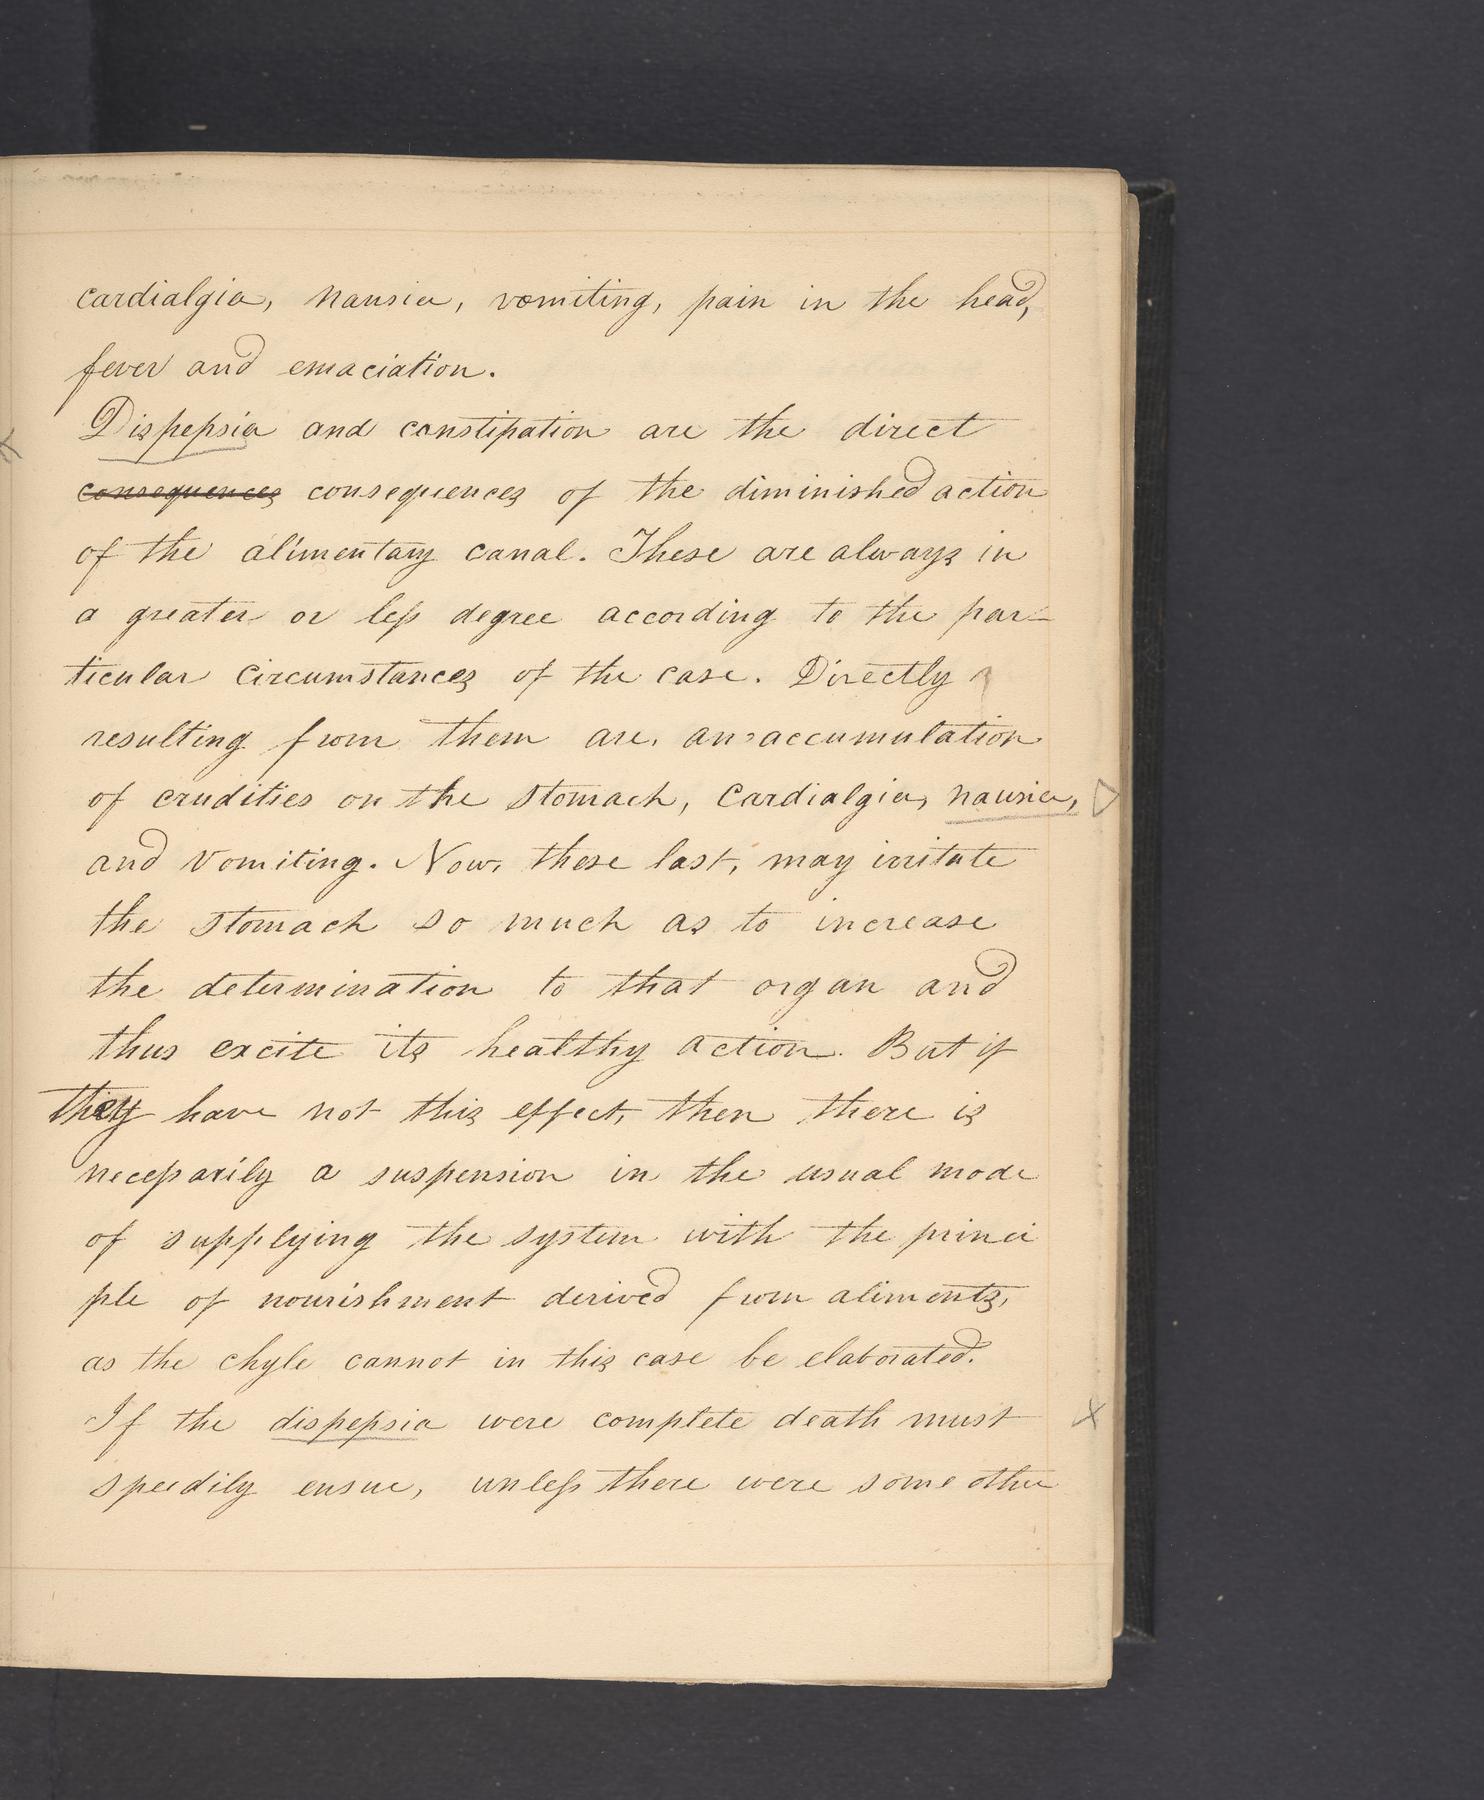 cardialgia, nausia, vomiting, pain in the head,
fever and emaciation.
Dispepsia and constipation are the direct
consequences consequences of the diminished action
of the alimentary canal. These are always in
a greater or less degree according to the par-
ticular circumstances of the case. Directly
resulting from them are, an accumulation
of crudities on the stomach, cardialgia, nausia,
and vomiting. Now, these last, may irritate
the stomach so much as to increase
the determination to that organ and
thus excite its healthy action. But if
they have not this effect, then there is
necessarily a suspension in the usual mode
of supplying the system with the princi
ple of nourishment derived from aliments,
as the chyle cannot in this case be elaborated.
If the dispepsia were complete death must
speedily ensue, unless there were some other